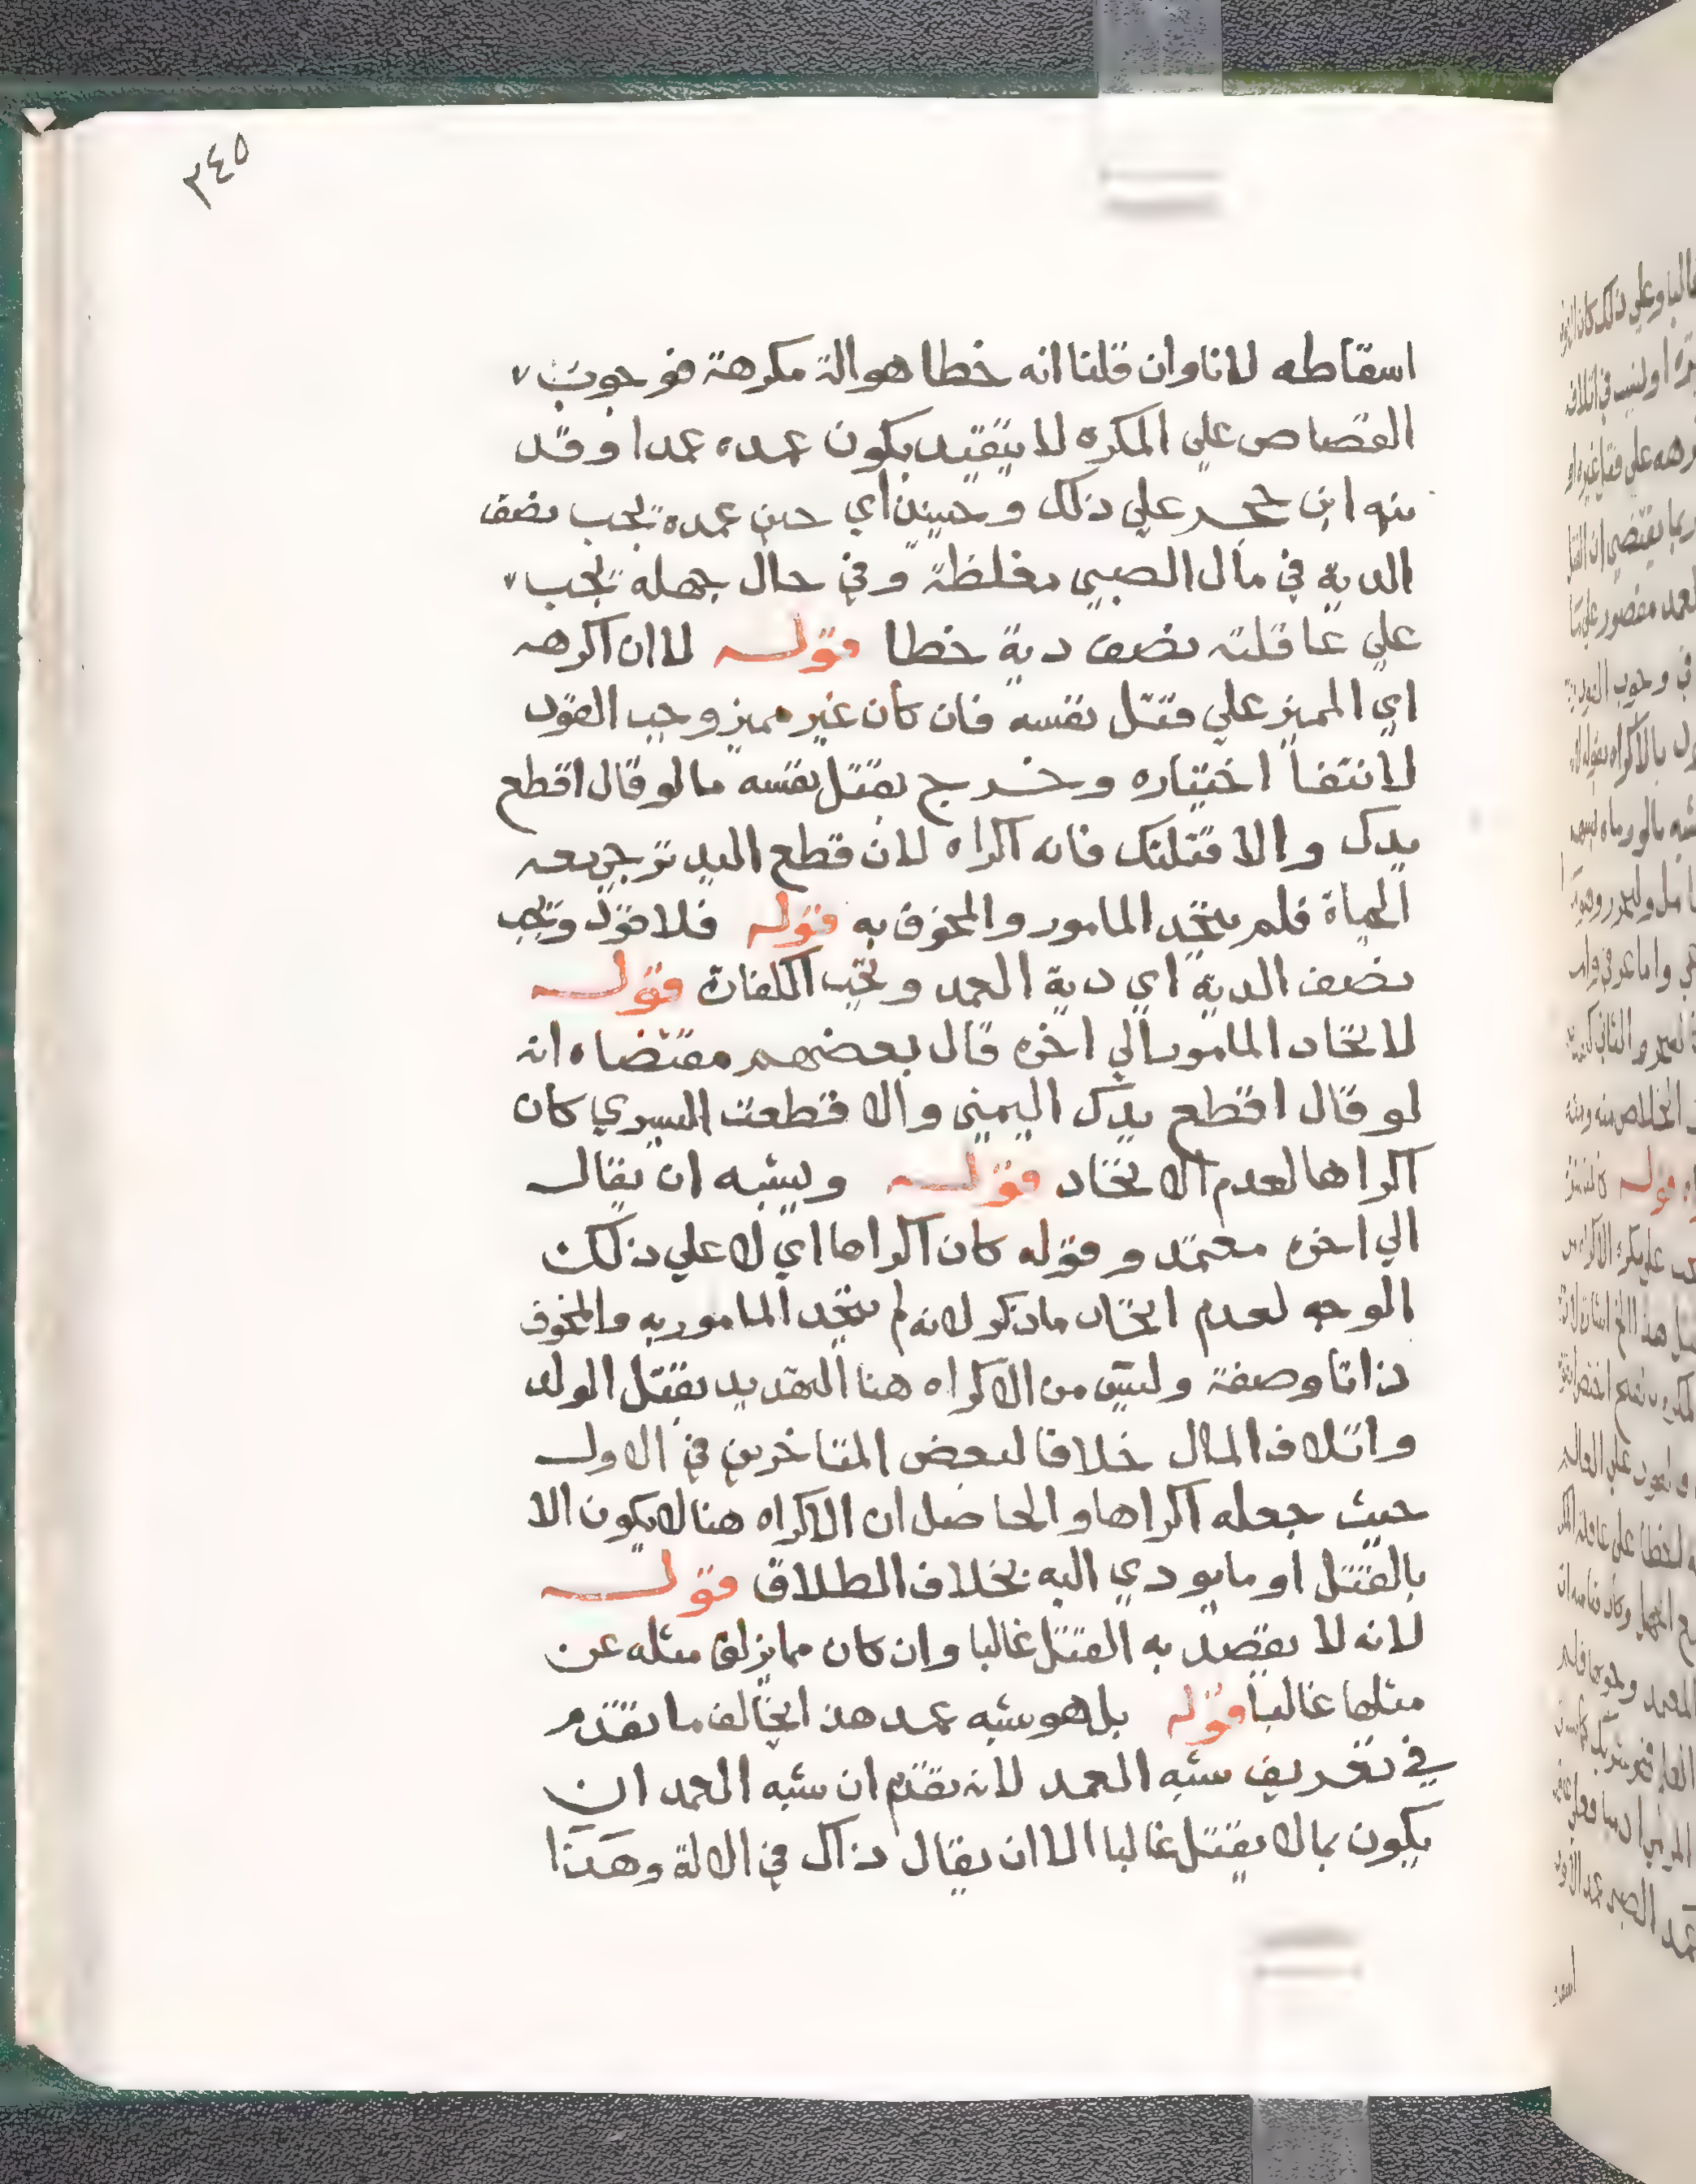 ٣٤٥
اسقاطه لانا وان قلنا انه خطا هو الة مكرهة فوجوب
القصاص علي المكره لا يتقيد بكون عمده عمدا وقد
نبه ابن حجر علي ذلك وحينئذ اي حين عمده تجب نصف
الدية في مال الصبي مغلظة وفي حال جهله تجب
علي عاقلته نصف دية خطا قوله لا ان اكره
اي المميز علي قتل نفسه فان كان غير مميز وجب القود
لانتفا اختياره وخرج بقتل نفسه ما لو قال اقطع
يدك والا قتلتك فانه اكراه لان قطع اليد ترجي معه
الحياة فلم يتحد المامور والمخوف به قوله فلا قود وتجب
نصف الدية اي دية العمد وتجب الكفارة قوله
لاتحاد المامور الي اخره قال بعضهم مقتضاه انه
لو قال اقطع يدك اليمني والا قطعت اليسري كان
اكراها لعدم الاتحاد قوله ويشبه ان يقال
الي اخره معتمد وقوله كان اكراها اي لا علي ذلك
الوجه لعدم اتحاد ما ذكر لانه لم يتحد المامور به والمخوف
ذاتا وصفة وليس من الاكراه هنا التهديد بقتل الولد
واتلاف المال خلافا لبعض المتاخرين في الاول
حيث جعله اكراها والحاصل ان الاكراه هنا لا يكون الا
بالقتل او ما يودي اليه بخلاف الطلاق قوله
لانه لا يقصد به القتل غالبا وان كان مما يزلق مثله عن
مثلها غالبا قوله بل هو شبه عمد هذا يخالف ما تقدم
في تعريف شبه العمد لانه تقدم ان شبه العمد ان
يكون بما لا يقتل غالبا الا ان يقال ذاك في الالة وهذا